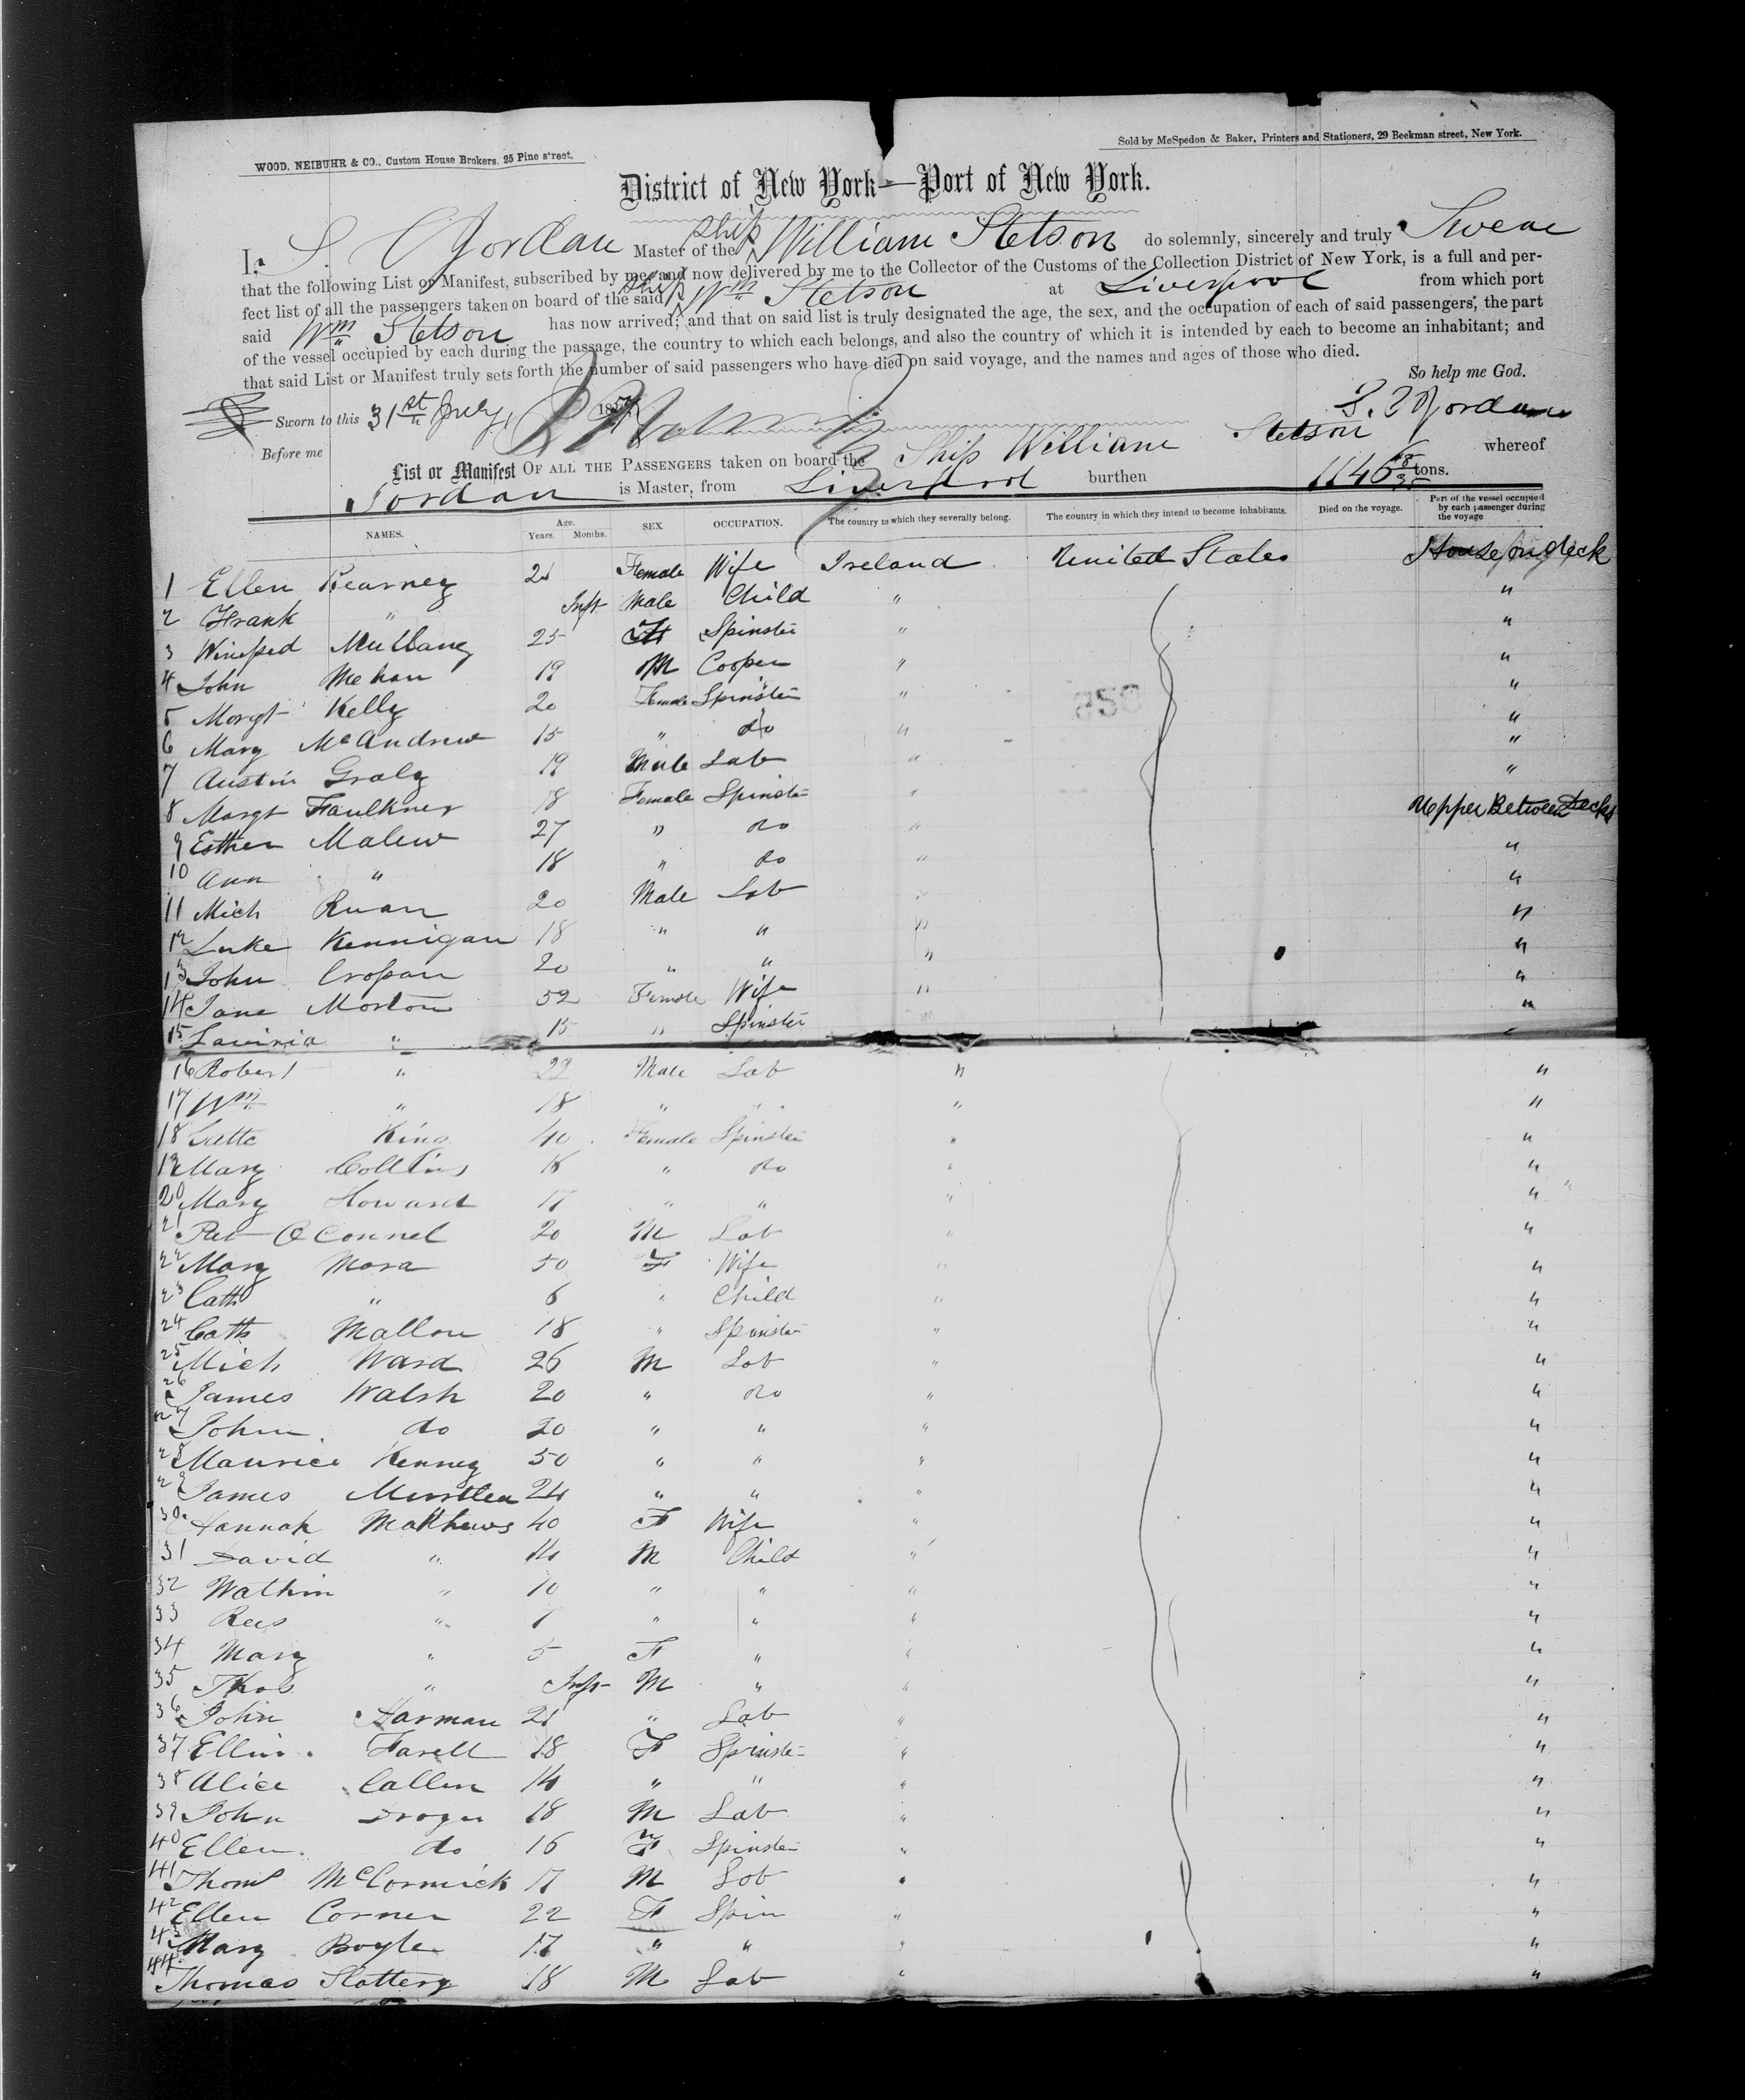 WOOD, NEIBUHR & CO., Custom House Brokers, 25 Pine street.
Sold by McSpedon & Baker, Printers and Stationers, 29 Beekman street, New York.
District of New York—Port of New York.
I, S. Jordan Master of the Ship William Stetson do solemnly, sincerely and truly Swear
that the following List or Manifest, subscribed by me, and now delivered by me to the Collector of the Customs of the Collection District of New York, is a full and per-
fect list of all the passengers taken on board of the said Ship Wm Stetson at Liverpool from which port
said Wm Stetson has now arrived; and that on said list is truly designated the age, the sex, and the occupation of each of said passengers, the part
of the vessel occupied by each during the passage, the country to which each belongs, and also the country of which it is intended by each to become an inhabitant; and
that said List or Manifest truly sets forth the number of said passengers who have died on said voyage, and the names and ages of those who died.
So help me God.
Sworn to this 31st July, 185 S. Jordan
Before me
List or Manifest OF ALL THE PASSENGERS taken on board the Ship William Stetson whereof
Jordan is Master, from Liverpool burthen 1146 tons.
NAMES. Age. Years. Months. SEX. OCCUPATION. The country to which they severally belong. The country in which they intend to become inhabitants. Died on the voyage. Part of the vessel occupied by each passenger during the voyage
1 Ellen Kearney Female Wife Ireland United States House on deck
2 Frank " Inft Male Child " "
3 Winifred Mullany 25 F Spinster " "
4 John Mehan 19 M Cooper " "
5 Margt Kelly 20 Female Spinster " "
6 Mary McAndrew 15 " do " "
7 Austin Graly 19 Male Lab " "
8 Margt Faulkner 18 Female Spinster " "
9 Esther Malew 27 " do " Upper Between Decks
10 Ann " 18 " do " "
11 Mich Ruan 20 Male Lab " "
12 Luke Kennigan 18 " " " "
13 John Crosan 20 " " " "
14 Jane Morton 52 Female Wife " "
15 Lavinia " 15 " Spinster " "
16 Robert " 22 Male Lab " "
17 Wm " 18 " " " "
18 King 40 Female Spinster " "
19 Mary Collins 18 " do " "
20 Mary Howard 17 " " " "
21 Pat O Connel 20 M Lab " "
22 Mary Mara 50 F Wife " "
23 Cath " 6 " Child " "
24 Cath Mallon 18 " Spinster " "
25 Mich Ward 26 M Lab " "
26 James Walsh 20 " do " "
27 John do 20 " " " "
28 Maurice Kenney 50 " " " "
29 James 24 " " " "
30 Hannah Matthews 40 F Wife " "
31 David " 14 M Child " "
32 Watkin " 10 " " " "
33 Rees " 7 " " " "
34 Mary " 5 F " " "
35 Thos " Inft M " " "
36 John Harman 21 " Lab " "
37 Ellin Farell 18 F Spinster " "
38 Alice Callen 14 " " " "
39 John 18 M Lab " "
40 Ellen do 16 F Spinster " "
41 Thoms McCormick 17 M Lab " "
42 Ellen Corner 22 F Spin " "
43 Mary Boyle 17 " " " "
44 Thomas Slattery 18 M Lab " "